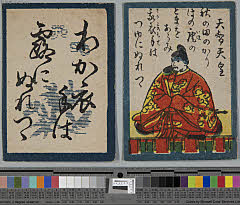 天智天皇
秋の田のかり
ほの庵の
とまをあらみ
わか衣手は
つゆにぬれつゝ
わか衣
手は
露に
ぬれつゝ